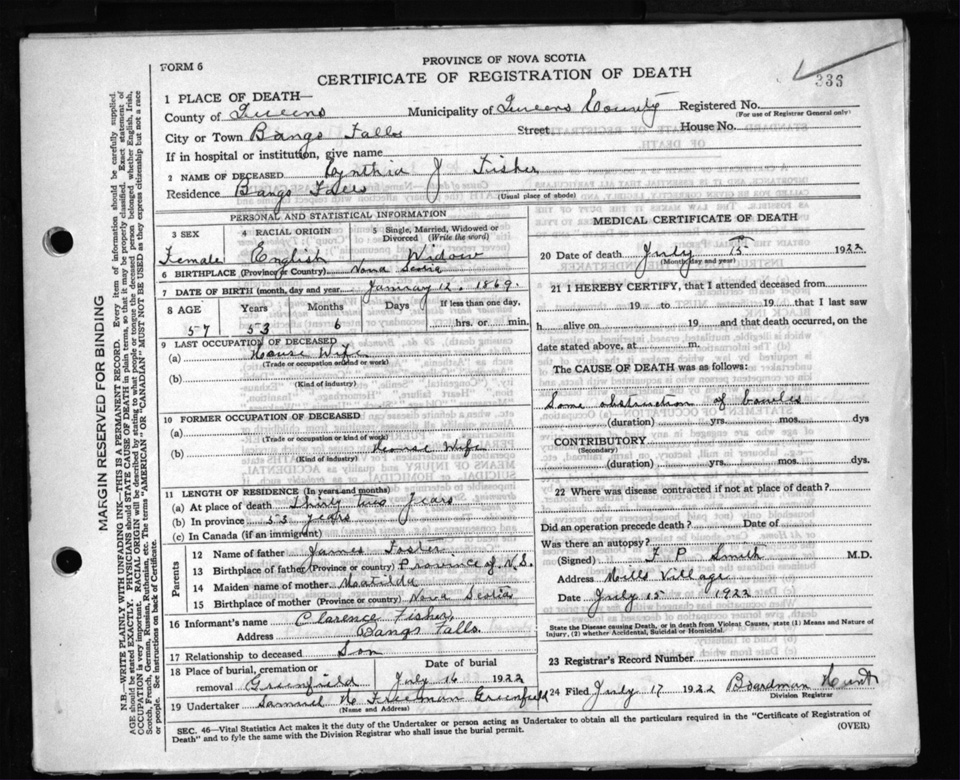 PROVINCE OF NOVA SCOTIA
FORM 6
CERTIFICATE OF REGISTRATION OF DEATH
336
1 PLACE OF DEATH—
County of Queens Municipality of Queens County Registered No.
(For use of Registrar General only)
City or Town Bangs Falls Street House No.
If in hospital or institution, give name
2 NAME OF DECEASED Cynthia J Fisher
Residence Bangs Falls
(Usual place of abode)
PERSONAL AND STATISTICAL INFORMATION
3 SEX 4 RACIAL ORIGIN 5 Single, Married, Widowed or Divorced (Write the word)
Female English Widow
6 BIRTHPLACE (Province or Country) Nova Scotia
7 DATE OF BIRTH (month, day and year) January 12, 1869.
8 AGE Years Months Days If less than one day,
57 53 6 hrs. or min.
9 LAST OCCUPATION OF DECEASED
(a) House Wife
(Trade or occupation and kind of work)
(b)
(Kind of industry)
10 FORMER OCCUPATION OF DECEASED
(a)
(Trade or occupation or kind of work)
(b) House Wife
(Kind of industry)
11 LENGTH OF RESIDENCE (In years and months)
(a) At place of death Thirty two Years
(b) In province 53 Years
(c) In Canada (if an immigrant)
Parents
12 Name of father James Foster
13 Birthplace of father (Province or country) Province of N.S.
14 Maiden name of mother Matilda
15 Birthplace of mother (Province or country) Nova Scotia
16 Informant's name Clarence Fisher,
Address Bangs Falls.
17 Relationship to deceased Son
18 Place of burial, cremation or removal Greenfield Date of burial July 16 1922
19 Undertaker Samuel H Freeman Greenfield
(Name and Address)
MEDICAL CERTIFICATE OF DEATH
20 Date of death July 15 1922
(Month, day and year)
21 I HEREBY CERTIFY, that I attended deceased from
19 to 19 that I last saw
h alive on 19 and that death occurred, on the
date stated above, at m.
The CAUSE OF DEATH was as follows:
Some obstruction of bowles
(duration) yrs. mos. dys
CONTRIBUTORY
(Secondary)
(duration) yrs. mos. dys.
22 Where was disease contracted if not at place of death?
Did an operation precede death? Date of
Was there an autopsy?
(Signed) F P Smith M.D.
Address Mills Village
Date July 15 1922
State the Disease causing Death, or in death from Violent Causes, state (1) Means and Nature of
Injury, (2) whether Accidental, Suicidal or Homicidal.
23 Registrar's Record Number
24 Filed July 17 1922 Boardman Hunt
Division Registrar
SEC. 46—Vital Statistics Act makes it the duty of the Undertaker or person acting as Undertaker to obtain all the particulars required in the "Certificate of Registration of
Death" and to fyle the same with the Division Registrar who shall issue the burial permit.
(OVER)
MARGIN RESERVED FOR BINDING
N.B.—WRITE PLAINLY WITH UNFADING INK—THIS IS A PERMANENT RECORD. Every item of information should be carefully supplied.
AGE should be stated EXACTLY. PHYSICIANS should STATE CAUSE OF DEATH in plain terms, so that it may be properly classified. Exact statement of
OCCUPATION is very important. RACIAL ORIGIN will be described by stating to what people or tongue the deceased person belonged, whether English, Irish,
Scotch, French, German, Russian, Ruthenian, etc. The terms "AMERICAN" or "CANADIAN" MUST NOT BE USED as they express citizenship but not a race
or people. See instructions on back of Certificate.